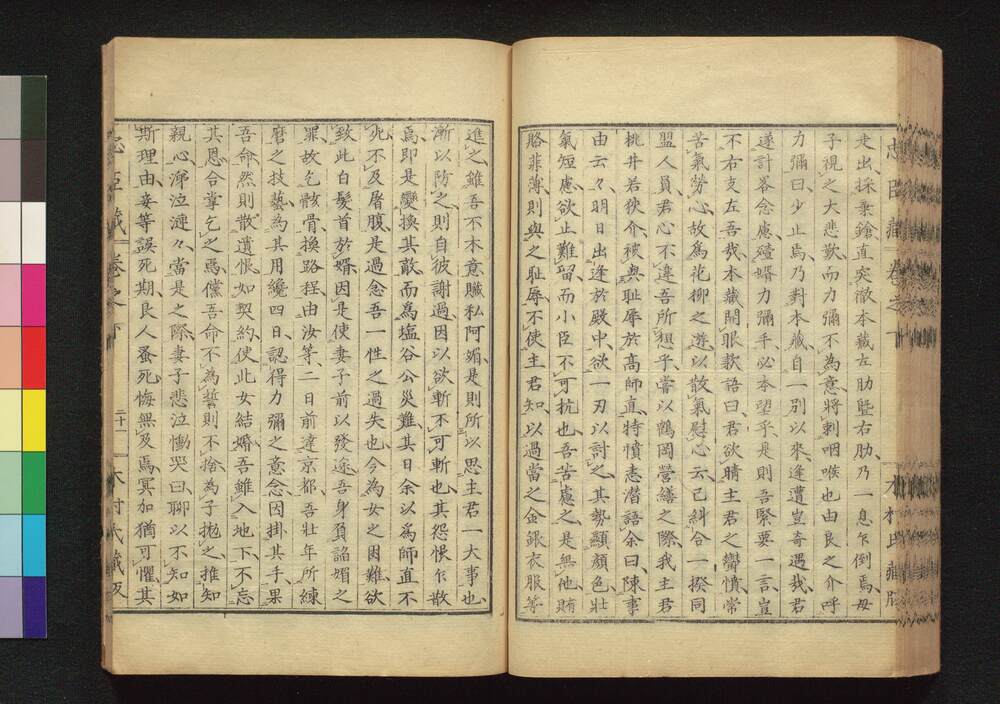 走出採乗鎗直突徹本藏左肋曁右肋、乃一息乍倒焉母
子視之大悲歎而力彌不為意、將刺咽喉也由良之介呼
力彌曰、少止焉乃對本藏自一別以來、逢遭豈奇遇哉君
遂計畧念慮、殪婿力彌手、必本望乎、是則吾緊要一言、豈
不右支左吾哉本藏開眼款語曰、君欲晴主君之欝憤、常
苦氣勞心、故為花柳之遊以散氣慰心云、已糾合一揆同
盟人員、君心不違吾所想乎、嘗以鶴岡營繕之際、我主君
桃井若狹介被與耻辱於高師直、特憤恚潛語余曰、陳事
由云々、明日出逢於殿中、欲一刃以討之、其勢顯顔色、壯
氣短慮、欲止難留、而小臣不可抗也、吾苦慮之、是無他、賄
賂菲薄、則與之耻辱、不使主君知、以過當之金銀衣服等
進之、雖吾不本意贓私阿媚、是則所以思主君一大事也、
漸以防之、則自彼謝過、因以欲斬不可斬也、其怨恨乍散
焉、即是變換其敵、而爲塩谷公災難、其日余以爲師直不
死、不及屠腹、是過念吾一性之過失也、今為女之困難、欲
致此白髮首於婿、因是使妻子前以發途、吾身負諂媚之
罪、故乞骸骨、換路程由汝等、二日前達京都、吾壯年所練
磨之技藝、為其用纔四日、認得力彌之意念、因掛其手、果
吾命、然則散遺恨如契約、使此女結婚、吾雖入地下、不忘
其恩合掌乞之焉、儻吾命不為藝則不捨、為子抛之、推知
親心、渧泣漣々、當是之際、妻子悲泣慟哭曰、聊以不知如
斯理由、妾等誤死期、良人蚤死、悔無及焉、冥加猶可懼、其
忠臣藏 卷之下 二十一 木村氏藏版